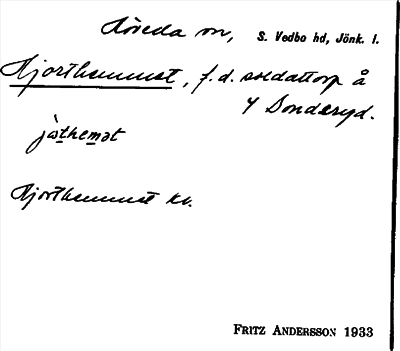 Höreda sn, S. Vedbo hd, Jönk. l.
Hjorthemmet, f.d. soldattorp å
Y Sondaryd.
jòthemət
Hjorthemmet kv.
FRITZ ANDERSSON 1933